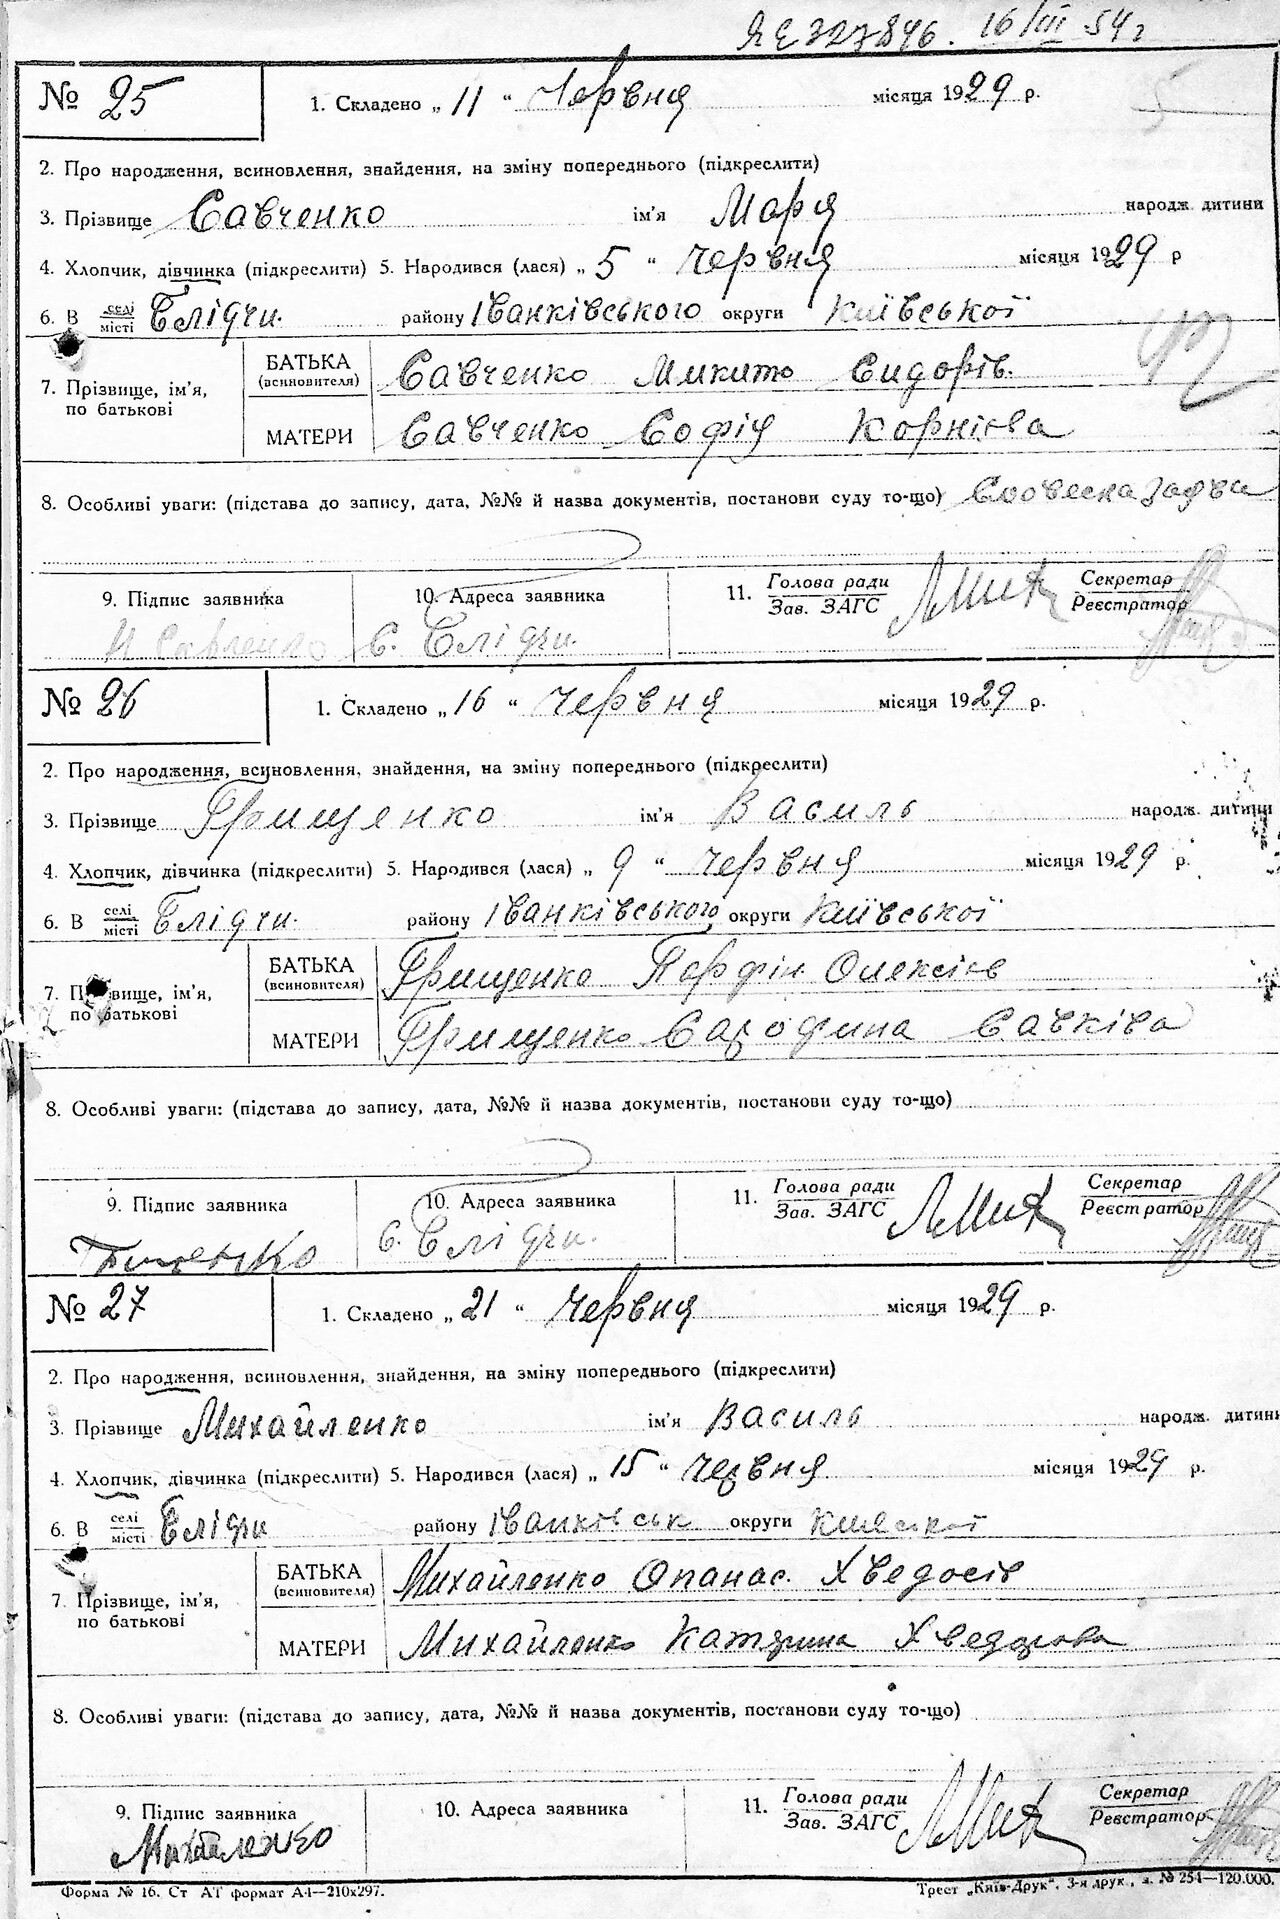 ЯЕ 327846. 16/III 54 г
№ 25 1. Складено „ 11 “ Червня місяця 1929 р.
5
2. Про народження, всиновлення, знайдення, на зміну попереднього (підкреслити)
3. Прізвище Савченко ім’я Марія народж. дитини
4. Хлопчик, дівчинка (підкреслити) 5. Народився (лася) „ 5 “ Червня місяця 1929 р
6. В селі місті Блідчи. району Іванківського округи Київської
7. Прізвище, ім’я, по батькові
БАТЬКА (всиновителя) Савченко Микита Сидорів.
МАТЕРИ Савченко Софія Корнієва
8. Особливі уваги: (підстава до запису, дата, №№ й назва документів, постанови суду то-що) Словесна
9. Підпис заявника 10. Адреса заявника 11. Голова ради Зав. ЗАГС Секретар Реєстратор
Савченко с. Блідчи.
№ 26 1. Складено „ 16 “ Червня місяця 1929 р.
2. Про народження, всиновлення, знайдення, на зміну попереднього (підкреслити)
3. Прізвище Грищенко ім’я Василь народж. дитини
4. Хлопчик, дівчинка (підкреслити) 5. Народився (лася) „ 9 “ Червня місяця 1929 р.
6. В селі місті Блідчи. району Іванківського округи Київської
7. Прізвище, ім’я, по батькові
БАТЬКА (всиновителя) Грищенко Парфін Олексіїв
МАТЕРИ Грищенко Савківа
8. Особливі уваги: (підстава до запису, дата, №№ й назва документів, постанови суду то-що)
9. Підпис заявника 10. Адреса заявника 11. Голова ради Зав. ЗАГС Секретар Реєстратор
с. Блідчи.
№ 27 1. Складено „ 21 “ Червня місяця 1929 р.
2. Про народження, всиновлення, знайдення, на зміну попереднього (підкреслити)
3. Прізвище Михайленко ім’я Василь народж. дитини
4. Хлопчик, дівчинка (підкреслити) 5. Народився (лася) „ 15 “ Червня місяця 1929 р.
6. В селі місті Блідчи району Іванківськ округи Київської
7. Прізвище, ім’я, по батькові
БАТЬКА (всиновителя) Михайленко Опанас Хведосів
МАТЕРИ Михайленко Катерина Хведорова
8. Особливі уваги: (підстава до запису, дата, №№ й назва документів, постанови суду то-що)
9. Підпис заявника 10. Адреса заявника 11. Голова ради Зав. ЗАГС Секретар Реєстратор
Михайленко
Форма № 16. Ст АТ формат А4—210х297. Трест „Київ-Друк“. 3-я друк., з. № 254—120.000.